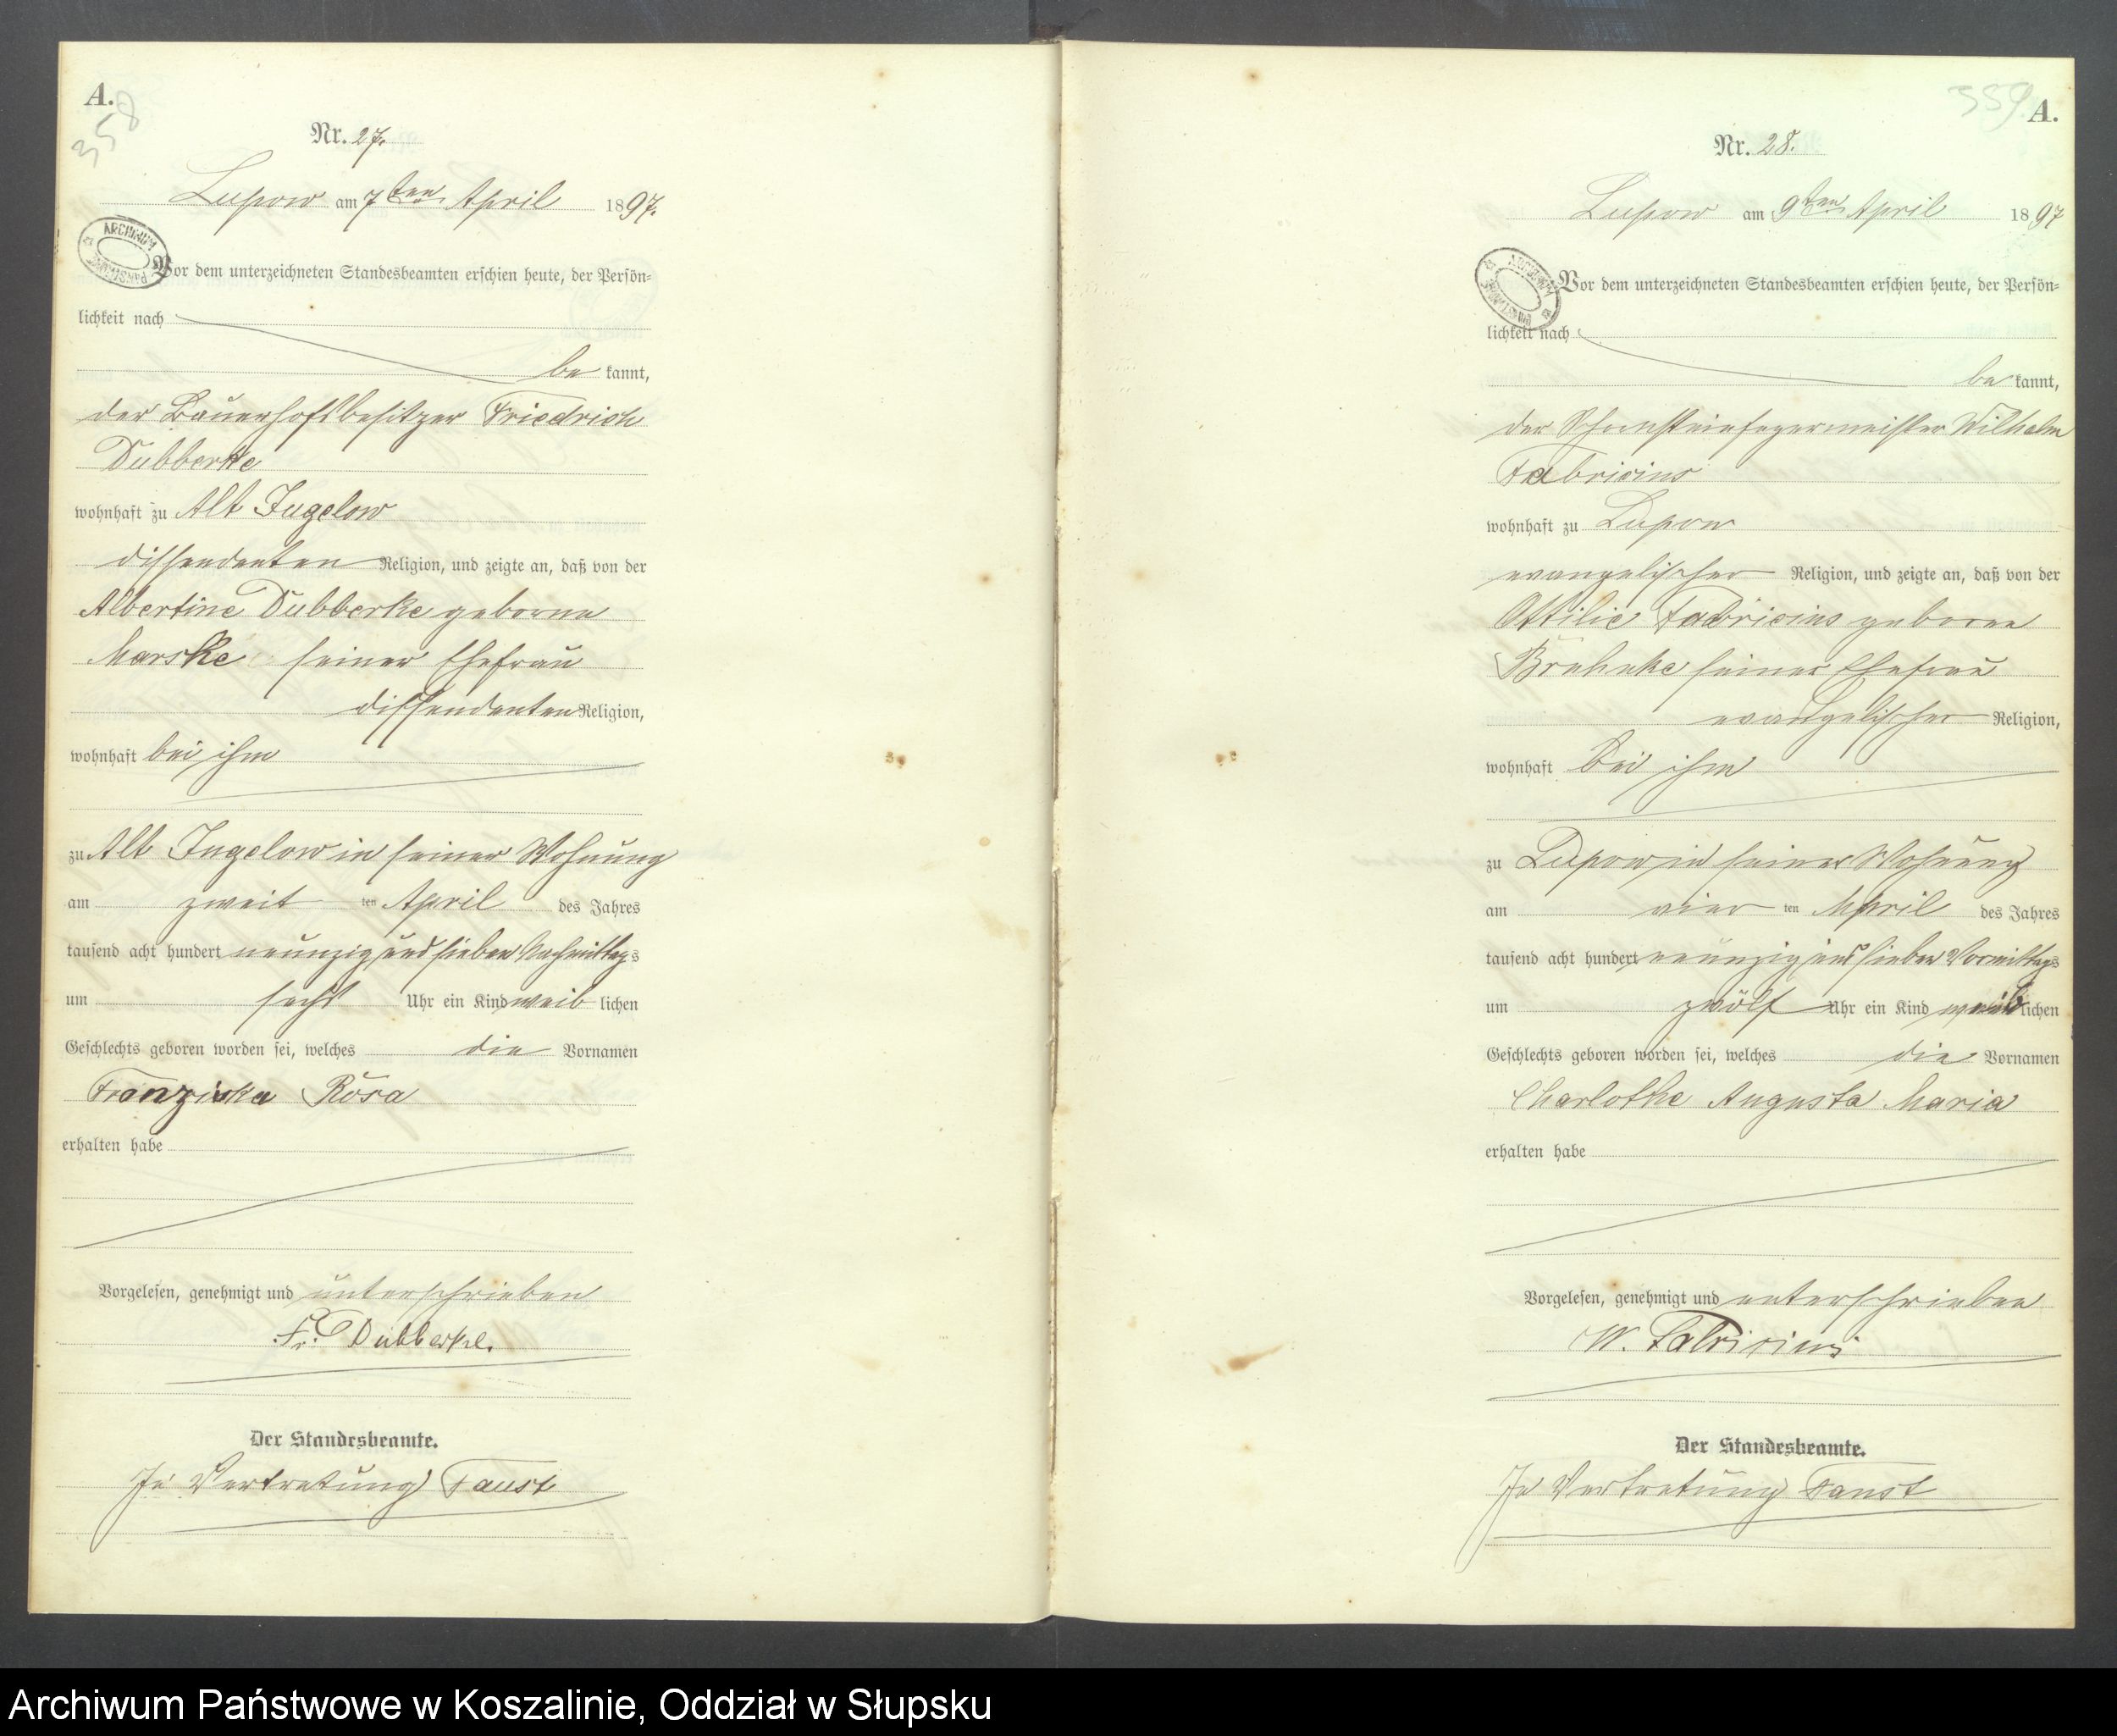 A.
358
Nr. 27.
Lupow am 7ten April 1897.
ARCHIWUM PAŃSTWOWE
Vor dem unterzeichneten Standesbeamten erschien heute, der Persön-
lichkeit nach
be kannt,
der Bauerhofsbesitzer Friedrich
Dubberke
wohnhaft zu Alt Jugelow
dissendenten Religion, und zeigte an, daß von der
Albertine Dubberke geborne
Marske seiner Ehefrau
dissendenten Religion,
wohnhaft bei ihm
zu Alt Jugelow in seiner Wohnung
am zweit ten April des Jahres
tausend acht hundert neunzig und sieben Nachmittags
um sechs Uhr ein Kind weib lichen
Geschlechts geboren worden sei, welches die Vornamen
Franziska Rosa
erhalten habe
Vorgelesen, genehmigt und unterschrieben
Fr. Dubberke.
Der Standesbeamte.
In Vertretung Faust
359
A.
Nr. 28.
Lupow am 9ten April 1897
ARCHIWUM PAŃSTWOWE
Vor dem unterzeichneten Standesbeamten erschien heute, der Persön-
lichkeit nach
be kannt,
der Schornsteinfegermeister Wilhelm
Fabricius
wohnhaft zu Lupow
evangelischer Religion, und zeigte an, daß von der
Ottilie Fabricius geborne
seiner Ehefrau
evangelischer Religion,
wohnhaft bei ihm
zu Lupow in seiner Wohnung
am vier ten April des Jahres
tausend acht hundert neunzig und sieben Vormittags
um zwölf Uhr ein Kind weib lichen
Geschlechts geboren worden sei, welches die Vornamen
Charlothe Augusta Maria
erhalten habe
Vorgelesen, genehmigt und unterschrieben
W. Fabricius
Der Standesbeamte.
In Vertretung Faust
Archiwum Państwowe w Koszalinie, Oddział w Słupsku